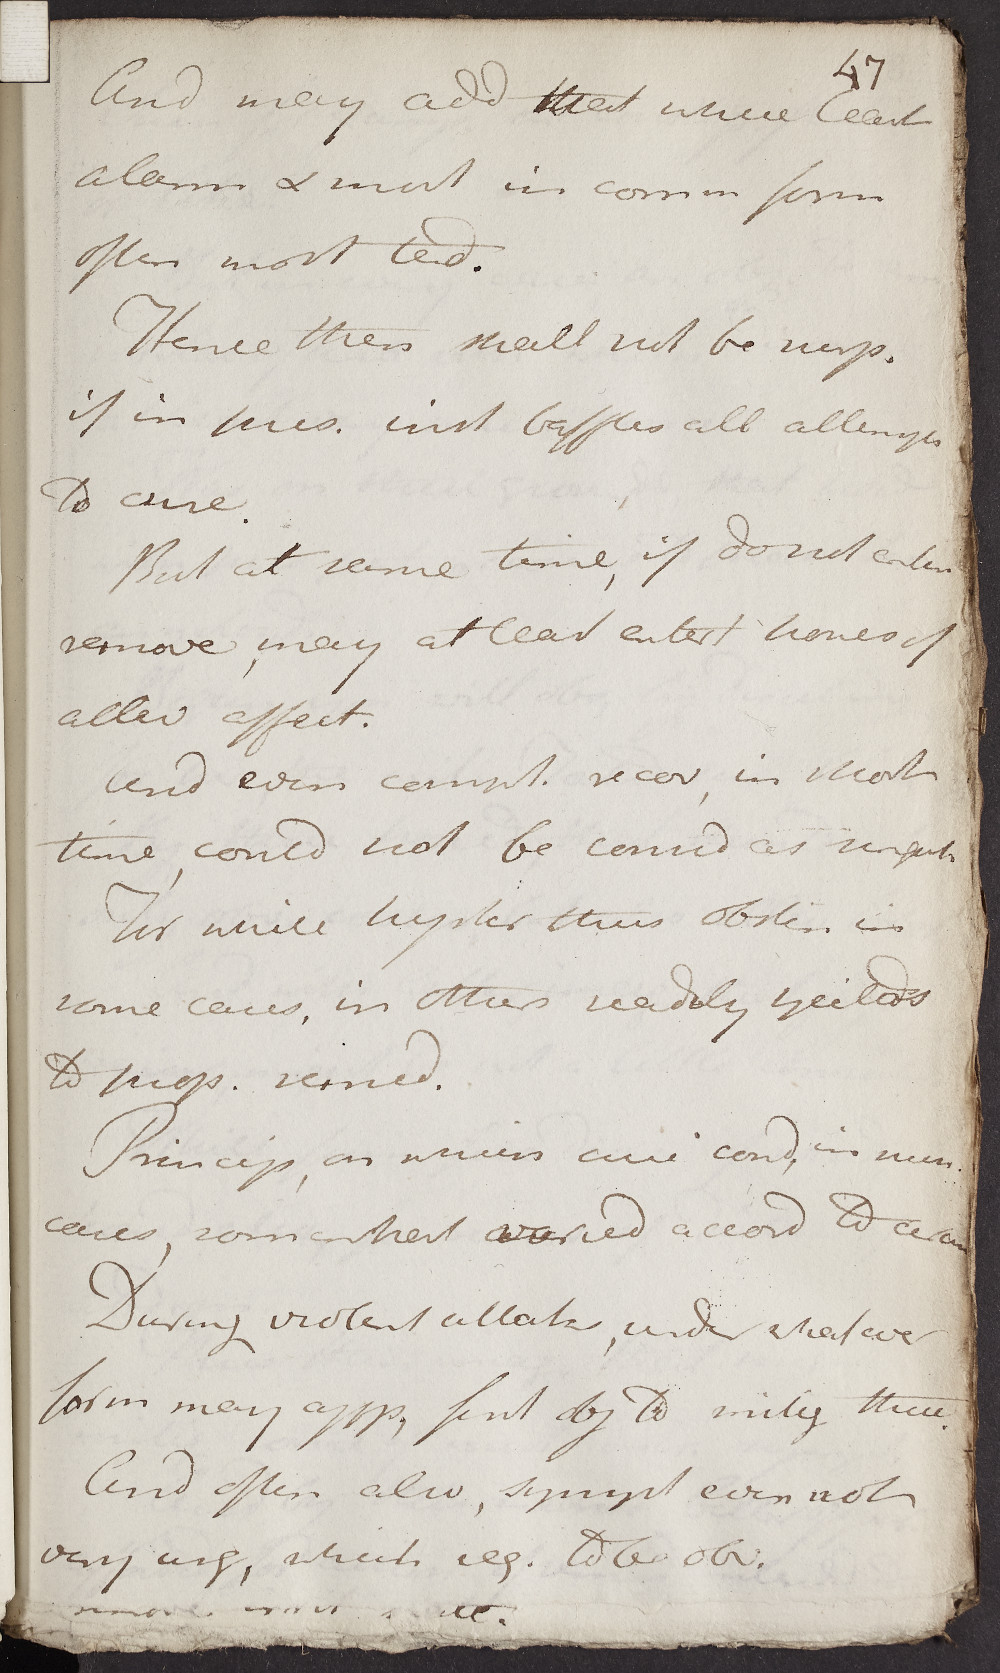 47
And may add that where least
alarm & most in comm form
often most ted.
Hence then shall not be surp.
if in pres. inst baffles all attempts
to cure.
But at same time, if do not entir
remove, may at least entert hopes of
allev effect.
And even compt. recov, in short
time, could not be consid as singula
For while hyster thus obstin in
some cases, in others readily yeilds
to prop. remed.
Princip, on which cure cond, in
cases, somewhat varied accord to circum
During violent attack, under whatever
form may app, first obj to mitig these.
And often also, sympt even not
very urg, which req. to be obv.